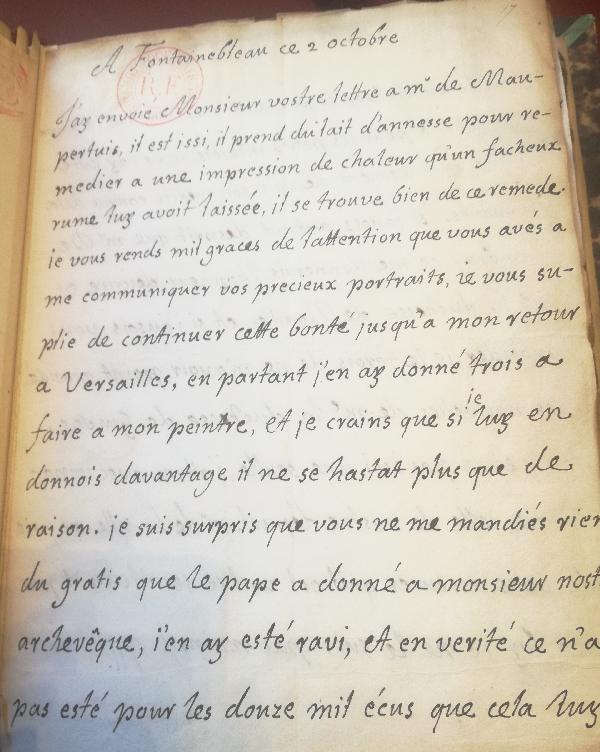 17
A Fontainebleau ce 2 octobre
R.F.
J'ay envoié Monsieur vostre lettre a mr de Mau-
pertuis, il est issi, il prend du lait d'annesse pour re-
medier a une impression de chaleur qu'un facheux
rume luy avoit laissée, il se trouve bien de ce remede.
je vous rends mil graces de l'attention que vous avés a
me communiquer vos precieux portraits, je vous su-
plie de continuer cette bonté jusqu'a mon retour
a Versailles, en partant j'en ay donné trois a
faire a mon peintre, et je crains que si je luy en
donnois davantage il ne se hastat plus que de
raison. je suis surpris que vous ne me mandiés rien
du gratis que le pape a donné a monsieur nost
archevêque, j'en ay esté ravi, et en verité ce n'a
pas esté pour les douze mil écus que cela luy